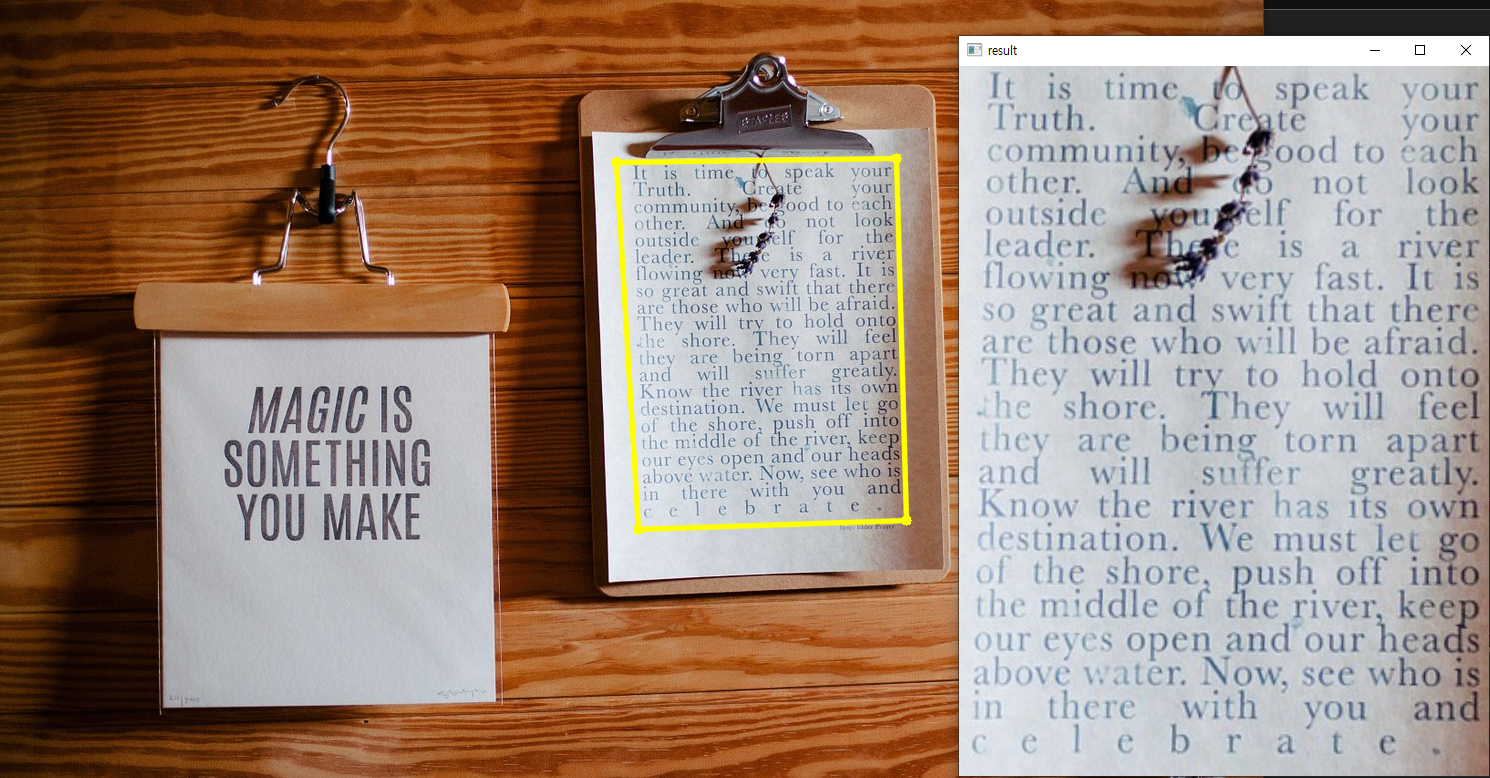 MAGIC IS
SOMETHING
YOU MAKE
STAPLES
It is time to speak your
Truth. Create your
community, be good to each
other. And do not look
outside yourself for the
leader. There is a river
flowing now very fast. It is
so great and swift that there
are those who will be afraid.
They will try to hold onto
the shore. They will feel
they are being torn apart
and will suffer greatly.
Know the river has its own
destination. We must let go
of the shore, push off into
the middle of the river, keep
our eyes open and our heads
above water. Now, see who is
in there with you and
celebrate.
Hopi Elder Prayer
result
It is time to speak your
Truth. Create your
community, be good to each
other. And do not look
outside yourself for the
leader. There is a river
flowing now very fast. It is
so great and swift that there
are those who will be afraid.
They will try to hold onto
the shore. They will feel
they are being torn apart
and will suffer greatly.
Know the river has its own
destination. We must let go
of the shore, push off into
the middle of the river, keep
our eyes open and our heads
above water. Now, see who is
in there with you and
celebrate.